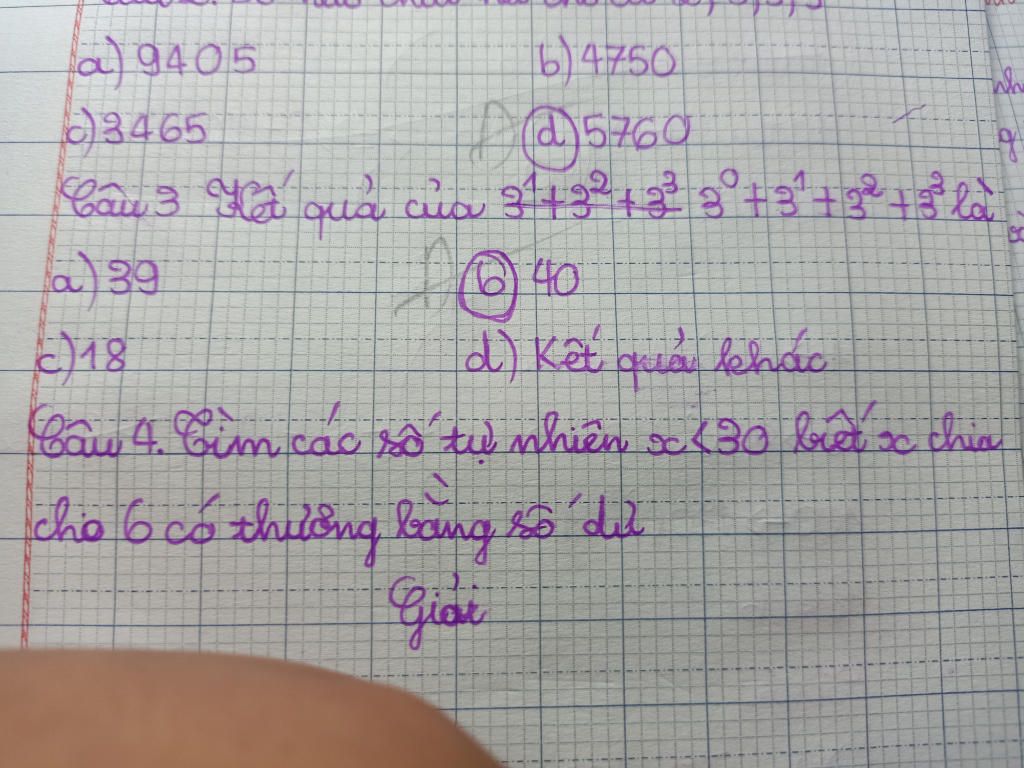 a) 9405 b) 4750
c) 3465 d) 5760
Câu 3 Kết quả của 3¹ + 3² + 3³ 3⁰ + 3¹ + 3² + 3³ là
a) 39 b) 40
c) 18 d) Kết quả khác
Câu 4. Tìm các số tự nhiên x < 30 biết x chia
cho 6 có thương bằng số dư
Giải